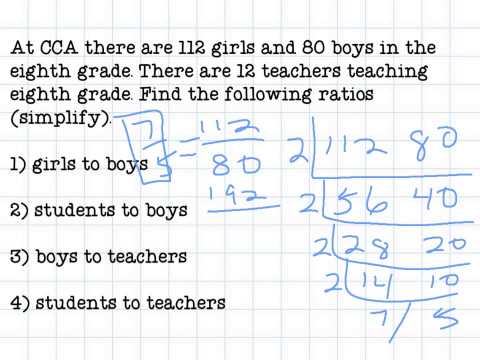 At CCA there are 112 girls and 80 boys in the
eighth grade. There are 12 teachers teaching
eighth grade. Find the following ratios
(simplify).
7/5 = 112/80
1) girls to boys
192
2) students to boys
3) boys to teachers
4) students to teachers
2 112 80
2 56 40
2 28 20
2 14 10
7 / 5